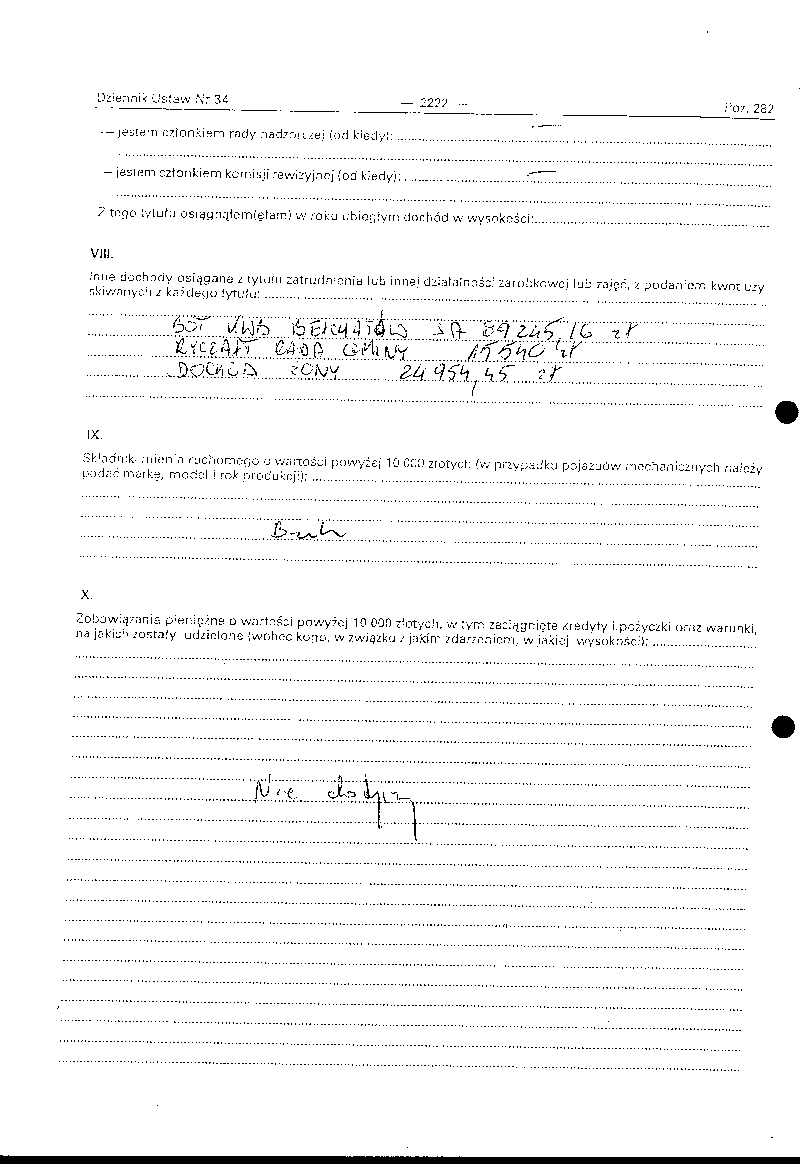 Dziennik Ustaw Nr 34 — 2222 — Poz. 282
— jestem członkiem rady nadzorczej (od kiedy): —
— jestem członkiem komisji rewizyjnej (od kiedy): —
Z tego tytułu osiągnąłem(ęłam) w roku ubiegłym dochód w wysokości:
VIII.
Inne dochody osiągane z tytułu zatrudnienia lub innej działalności zarobkowej lub zajęć, z podaniem kwot uzy-
skiwanych z każdego tytułu:
BOT KWB BEŁCHATÓW SA 89245,16 zł
RYCZAŁT RADA GMINY 15540 zł
DOCHÓD ŻONY 24954,45 zł
IX.
Składniki mienia ruchomego o wartości powyżej 10 000 złotych (w przypadku pojazdów mechanicznych należy
podać markę, model i rok produkcji):
Brak
X.
Zobowiązania pieniężne o wartości powyżej 10 000 złotych, w tym zaciągnięte kredyty i pożyczki oraz warunki,
na jakich zostały udzielone (wobec kogo, w związku z jakim zdarzeniem, w jakiej wysokości):
Nie dotyczy